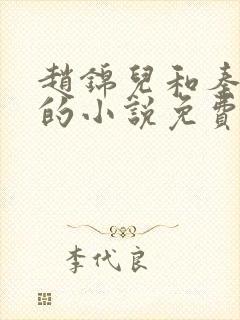 趙錦兒和秦
的小說免費
李代良